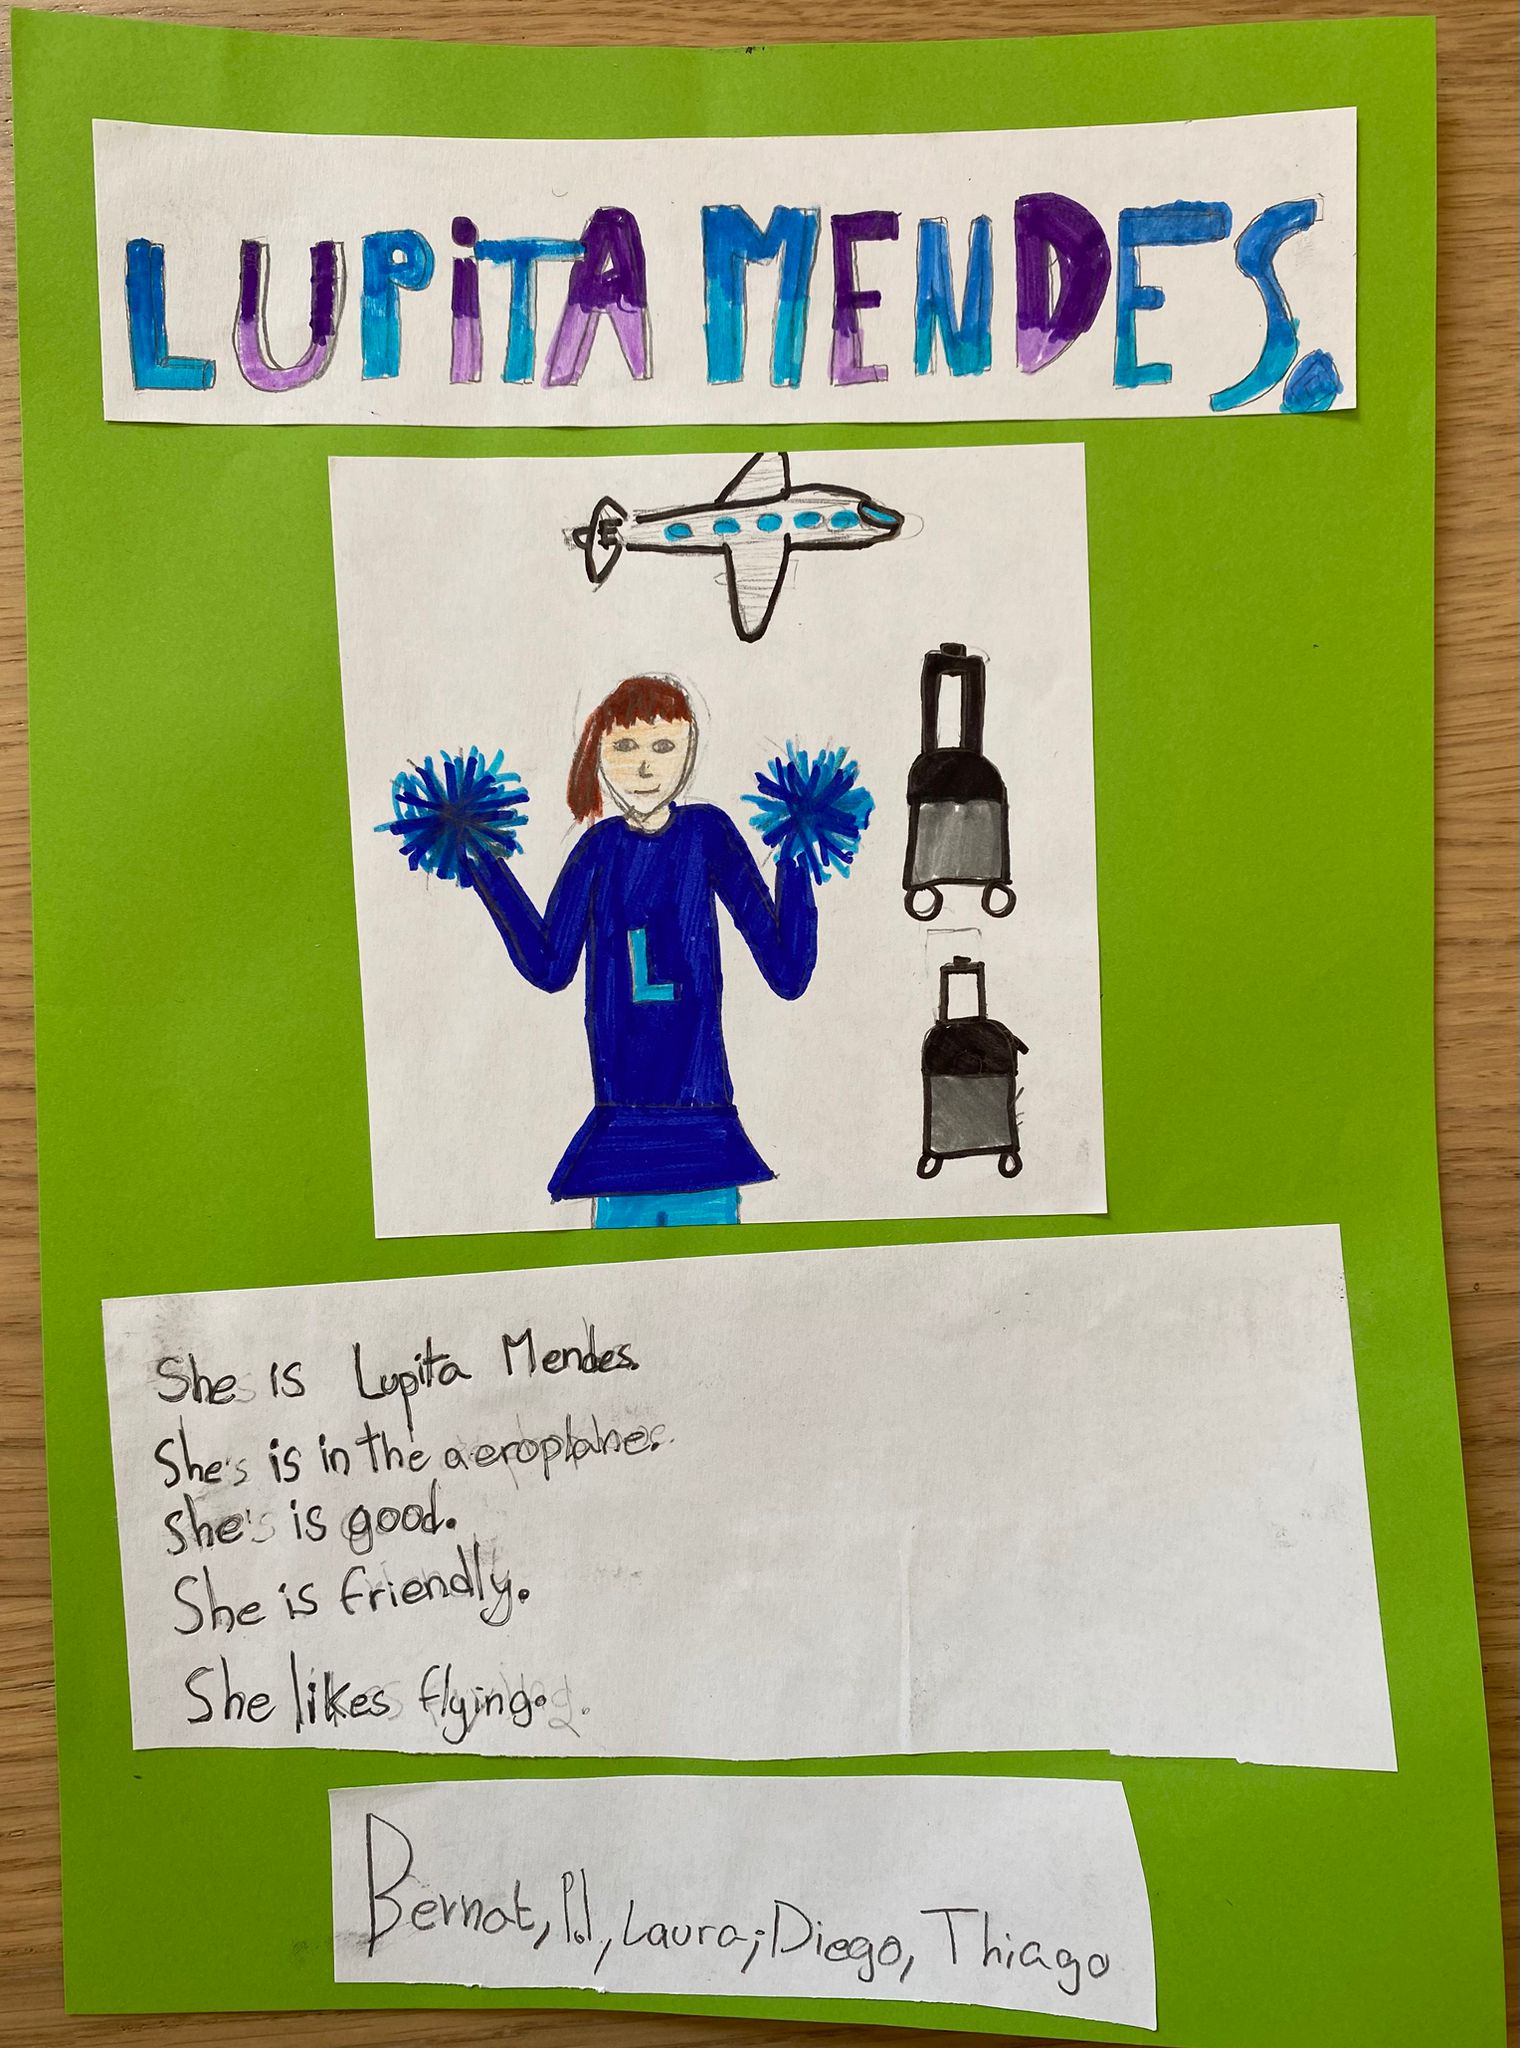 LUPiTA MENDES.
E
L
She is Lupita Mendes.
She's is in the aeroplane.
she's is good.
She is friendly.
She likes flying.
Bernat, P.J., Laura, Diego, Thiago